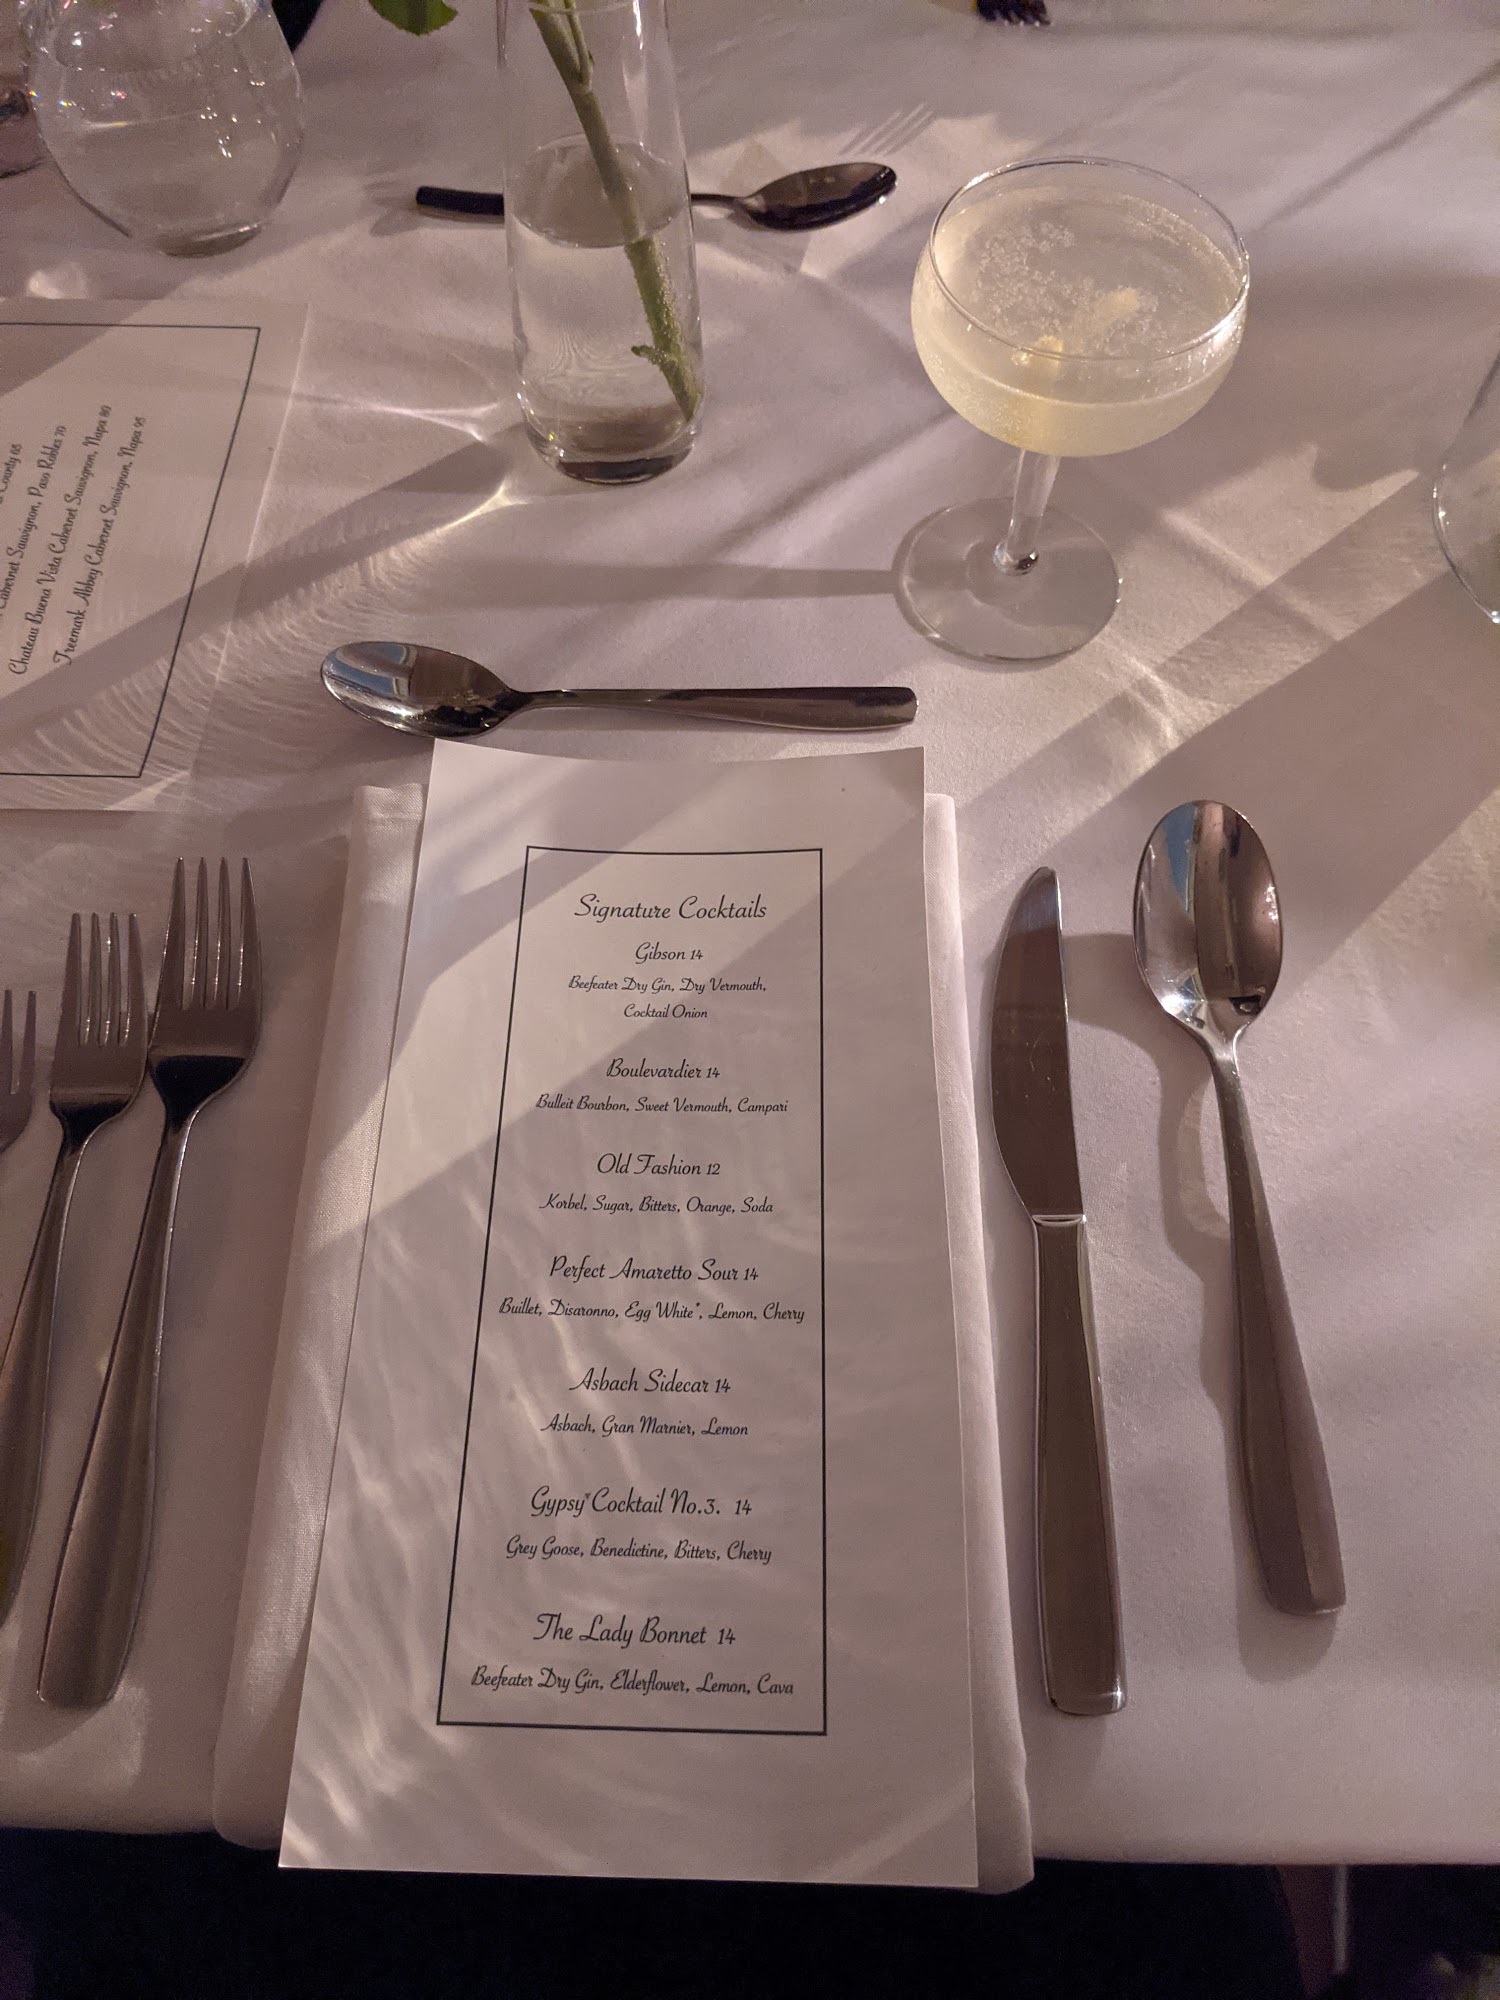 County 65
Cabernet Sauvignon, Paso Robles 70
Chateau Buena Vista Cabernet Sauvignon, Napa 80
Treemark Abbey Cabernet Sauvignon, Napa 95
Signature Cocktails
Gibson 14
Beefeater Dry Gin, Dry Vermouth,
Cocktail Onion
Boulevardier 14
Bulleit Bourbon, Sweet Vermouth, Campari
Old Fashion 12
Korbel, Sugar, Bitters, Orange, Soda
Perfect Amaretto Sour 14
Buillet, Disaronno, Egg White*, Lemon, Cherry
Asbach Sidecar 14
Asbach, Gran Marnier, Lemon
Gypsy Cocktail No.3. 14
Grey Goose, Benedictine, Bitters, Cherry
The Lady Bonnet 14
Beefeater Dry Gin, Elderflower, Lemon, Cava